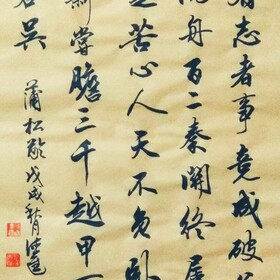 有志者事竟成破釜
沉舟百二秦關終屬
楚苦心人天不負卧
薪嘗膽三千越甲可
吞吳
蒲松齡 戊戌秋月